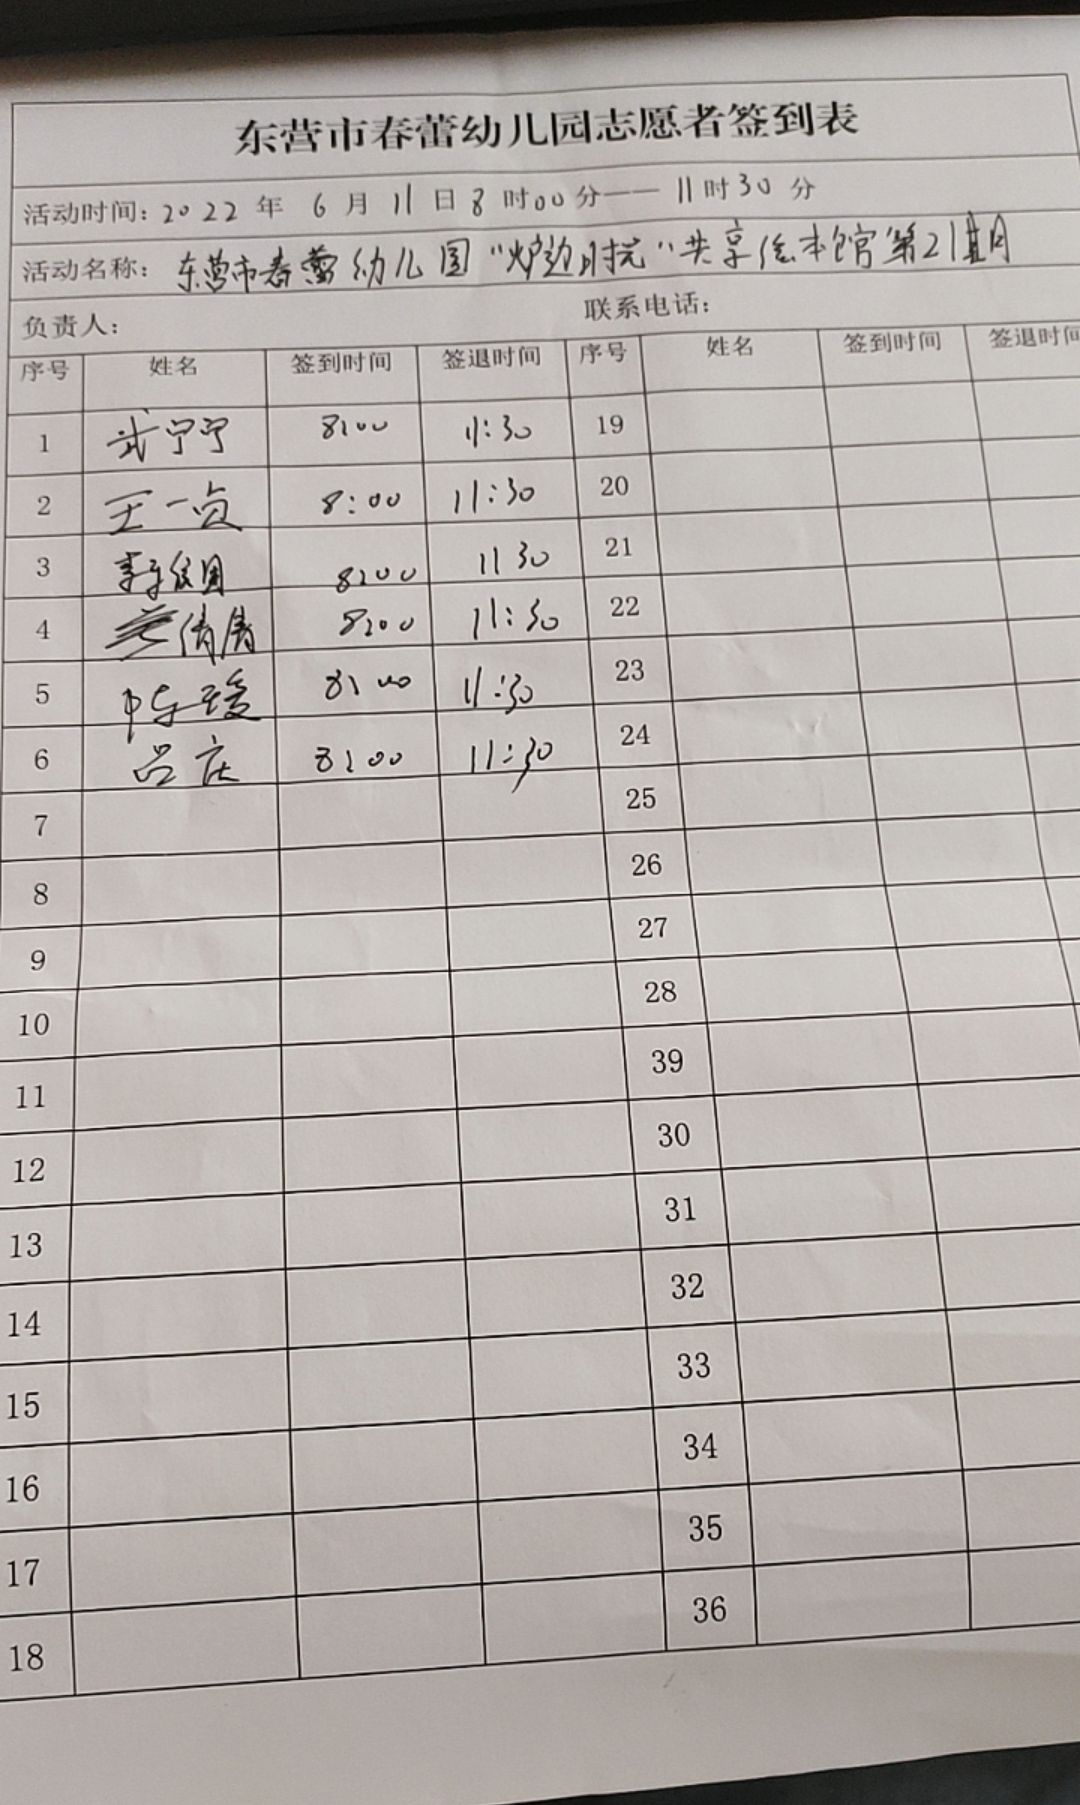 东营市春蕾幼儿园志愿者签到表
活动时间：2022 年 6 月 11 日 8 时00分——11时30分
活动名称：东营市春蕾幼儿园“炉边时光”共享绘本馆第21期
负责人： 联系电话：
序号 姓名 签到时间 签退时间 序号 姓名 签到时间 签退时间
1 武宁宁 8:00 11:30 19
2 王一贞 8:00 11:30 20
3 8:00 11 30 21
4 8:00 11:30 22
5 8:00 11:30 23
6 吕庆 8:00 11:30 24
7 25
8 26
9 27
10 28
11 39
12 30
13 31
14 32
15 33
16 34
17 35
18 36